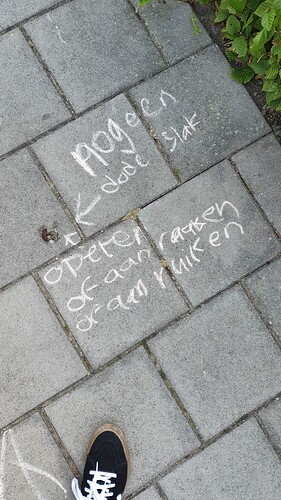 nog een
dode slak
opeten
of aan raaken
of aan ruiken